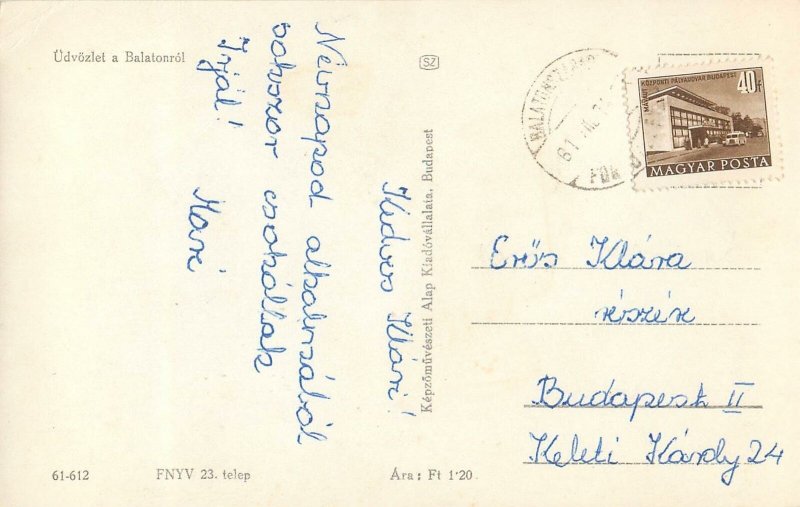 Üdvözlet a Balatonról
SZ
Kedves Klári!
Névnapod alkalmából
sokszor csókollak
Írjál!
Mari
Képzőművészeti Alap Kiadóvállalata, Budapest
MÁVAUT KÖZPONTI PÁLYAUDVAR BUDAPEST
40f
MAGYAR POSTA
61
Erős Klára
részére
Budapest II
Keleti Károly 24
61-612
FNYV 23. telep
Ára: Ft 1'20